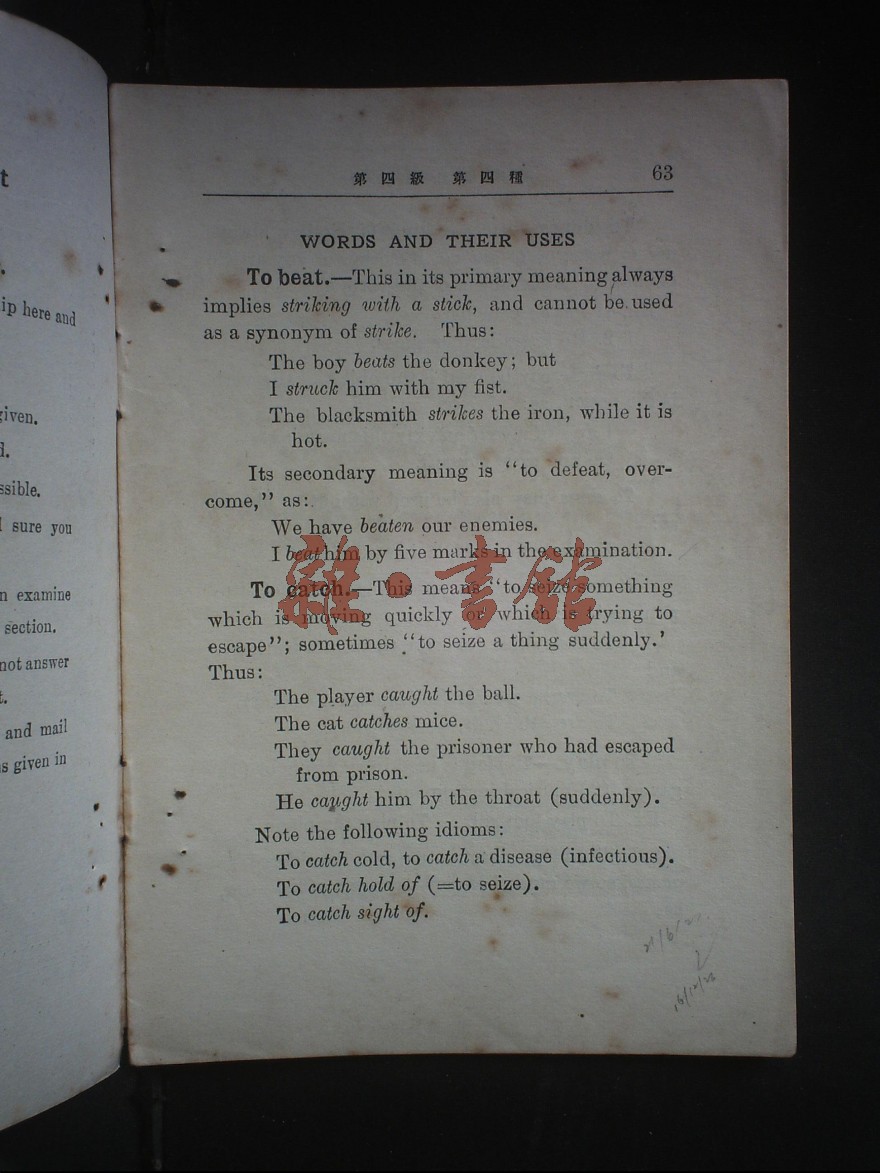 t
ip here and
given.
d.
ssible.
sure you
n examine
section.
not answer
t.
and mail
s given in
第四級 第四種 63
WORDS AND THEIR USES
To beat.—This in its primary meaning always
implies striking with a stick, and cannot be used
as a synonym of strike. Thus:
The boy beats the donkey; but
I struck him with my fist.
The blacksmith strikes the iron, while it is
hot.
Its secondary meaning is “to defeat, over-
come,” as:
We have beaten our enemies.
I beat him by five marks in the examination.
To catch.—This means “to seize something
which is moving quickly or which is trying to
escape”; sometimes “to seize a thing suddenly.’
Thus:
The player caught the ball.
The cat catches mice.
They caught the prisoner who had escaped
from prison.
He caught him by the throat (suddenly).
Note the following idioms:
To catch cold, to catch a disease (infectious).
To catch hold of (=to seize).
To catch sight of.
雜·書館